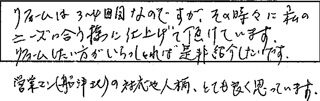 リフォームは3〜4回目なのですが、その時々に私の
ニーズに合う様に仕上げて頂けています。
リフォームしたい方がいらっしゃれば是非紹介したいです。
営業マン(船津さん)の対応や人柄、とても良く思っています。